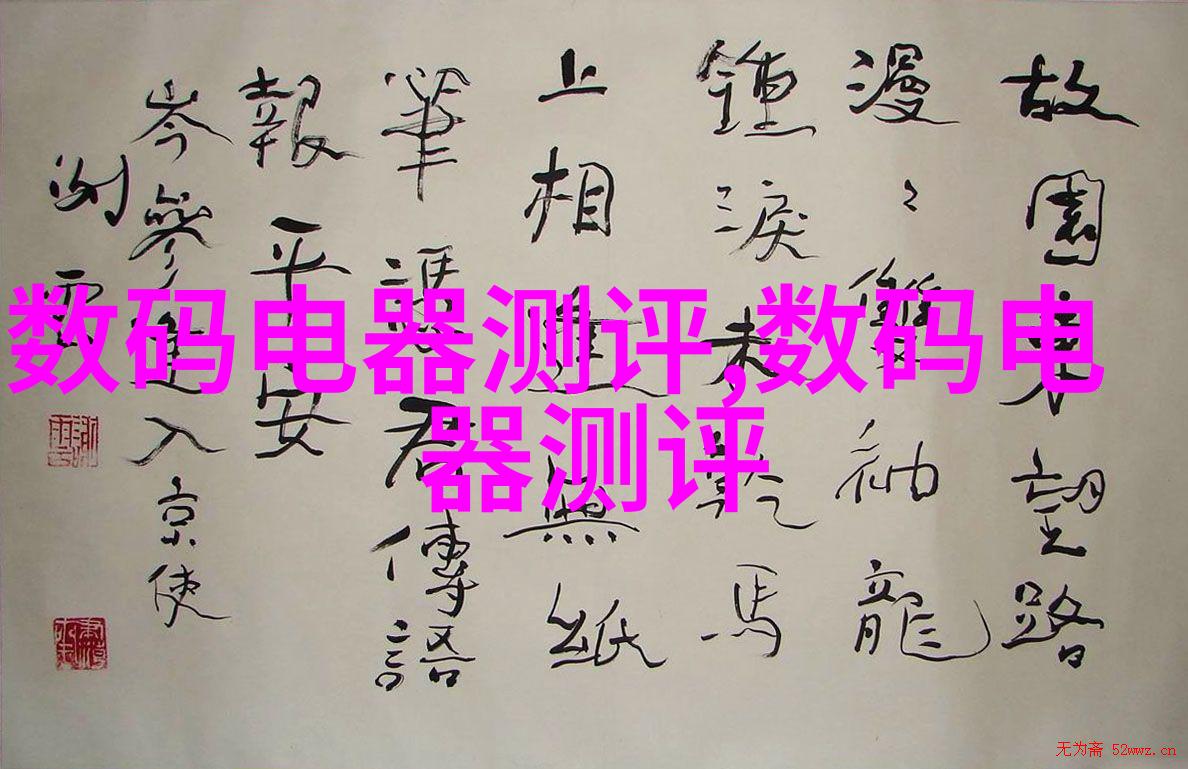 数码电器测评,数码电
器测评
故園東望路
漫〻雙袖龍
鍾淚未乾馬
上相逢無紙
筆憑君傳語
報平安
岑參逢入京使
无为斋 52wwz.cn